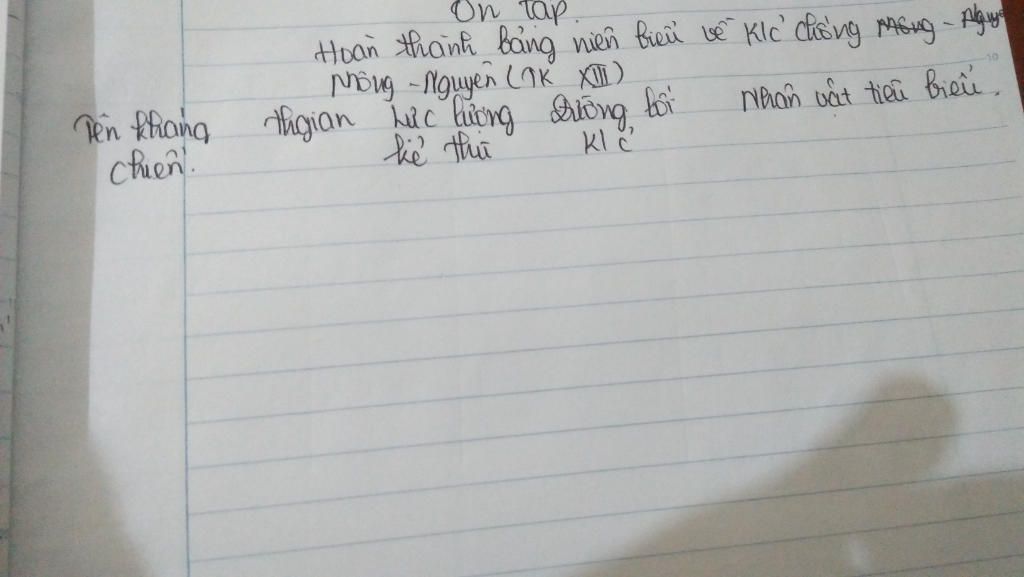 Ôn tập.
Hoàn thành bảng niên biểu về K/c chống Mông - Nguyê
Mông - Nguyên (TK XIII)
Tên kháng thgian Lực lượng Đường lối Nhân vật tiêu biểu.
chiến. kẻ thù K/c